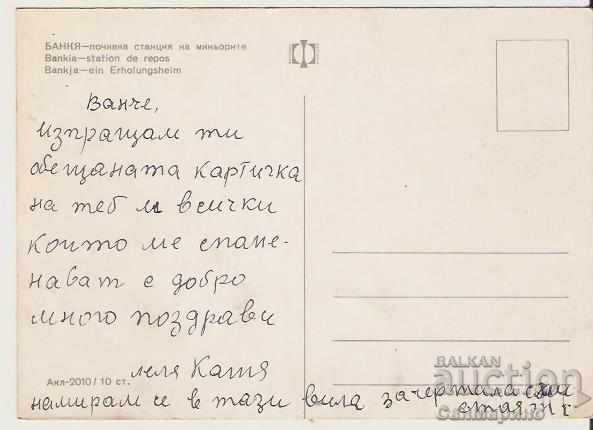 БАНКЯ—почивна станция на миньорите
Bankia—station de repos
Bankja—ein Erholungsheim
Ванче,
изпращам ти
обещаната картичка
на теб и всички
които ме споме-
нават с добро
много поздрави
леля Катя
Акл-2010/10 ст.
намирам се в тази вила зачертала съм
стаята
BALKAN
auction
Сатирано